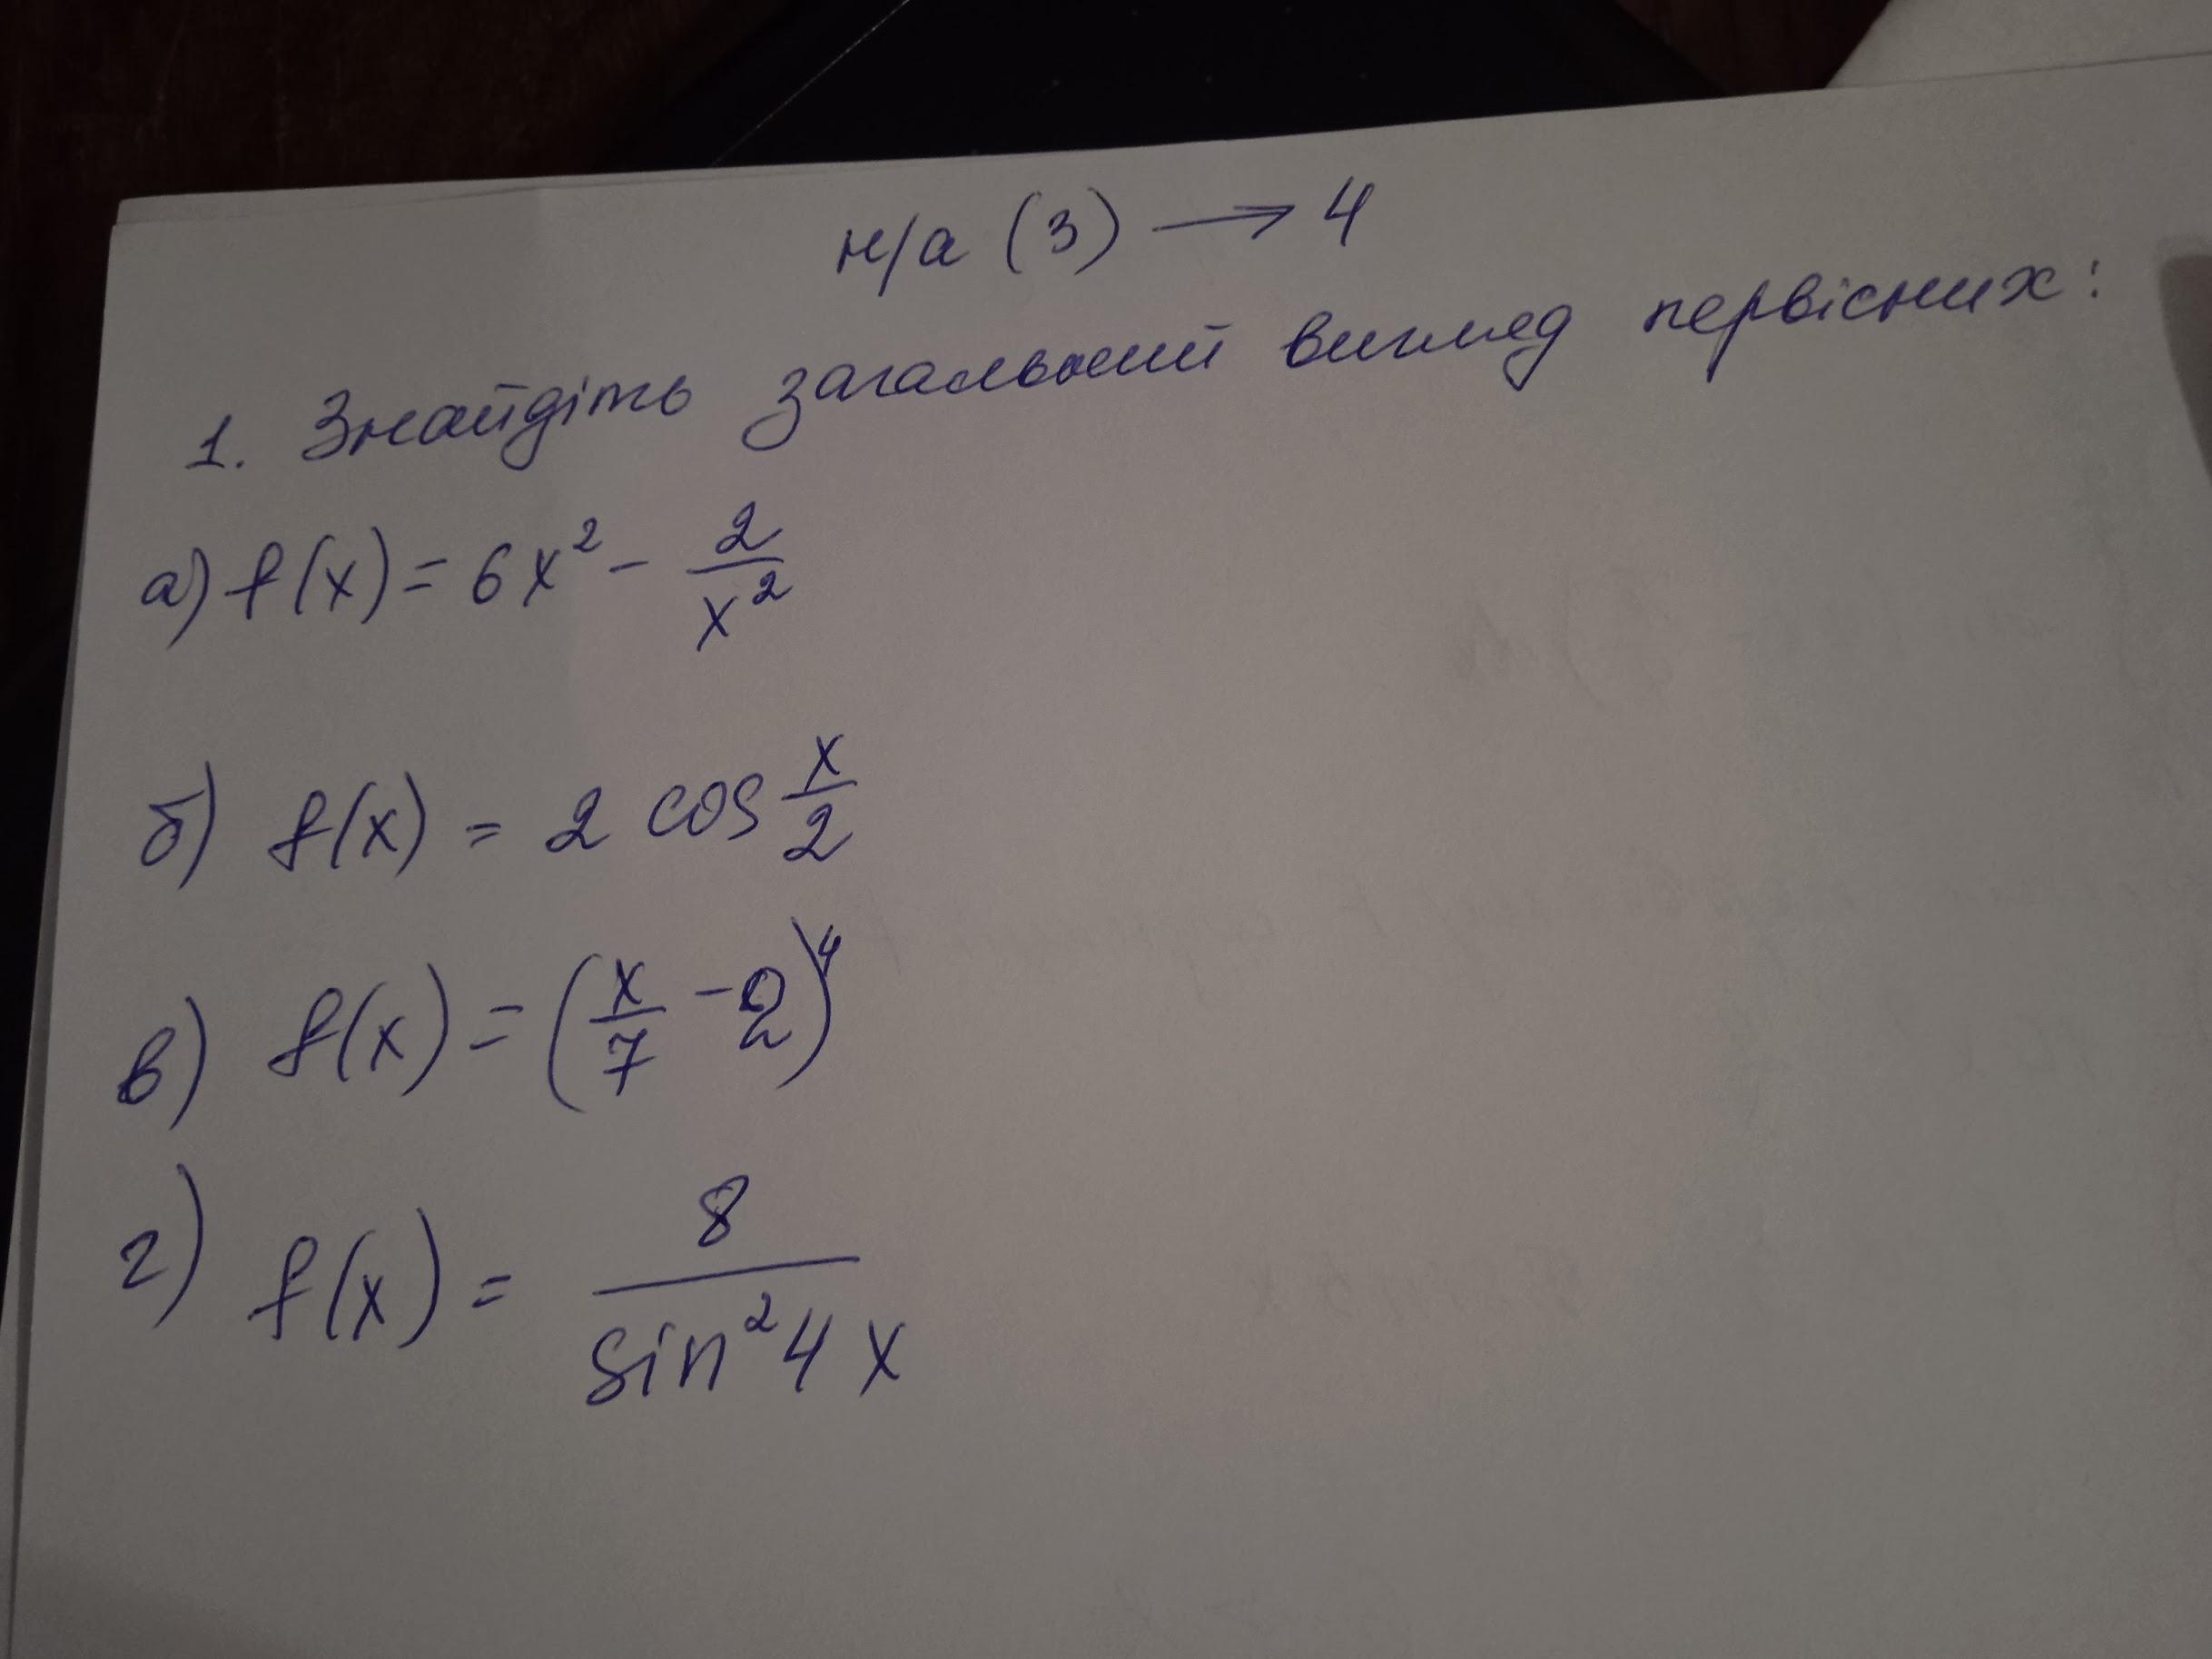 н/а (3) → 4
1. Знайдіть загальний вигляд первісних:
а) f(x) = 6x² - 2/x²
б) f(x) = 2 cos x/2
в) f(x) = (x/7 - 2)⁴
г) f(x) = 8/sin² 4x